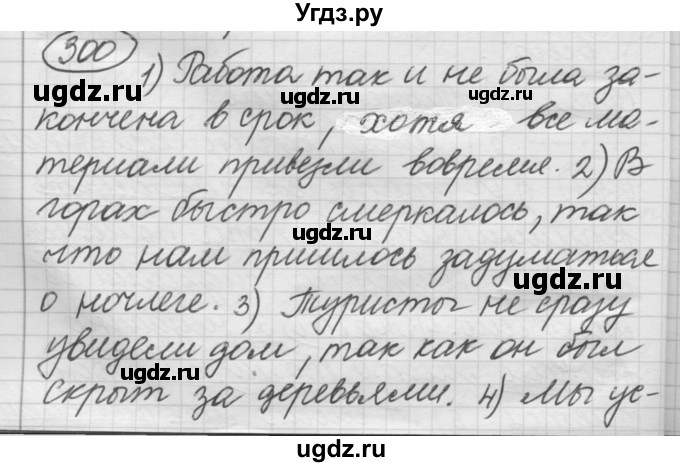 Угдз.ру
300
1) Работа так и не была за-
кончена в срок, хотя все ма-
териали привезли вовремя. 2) В
горах быстро смеркалось, так
что нам пришлось задуматься
о ночлеге. 3) Туристы не сразу
увидели дом, так как он был
скрыт за деревьями. 4) Мы ус-
ugdz.ru
ugdz.ru
ugdz.ru
ugdz.ru
ugdz.ru
ugdz.ru
ugdz.ru
ugdz.ru
ugdz.ru
ugdz.ru